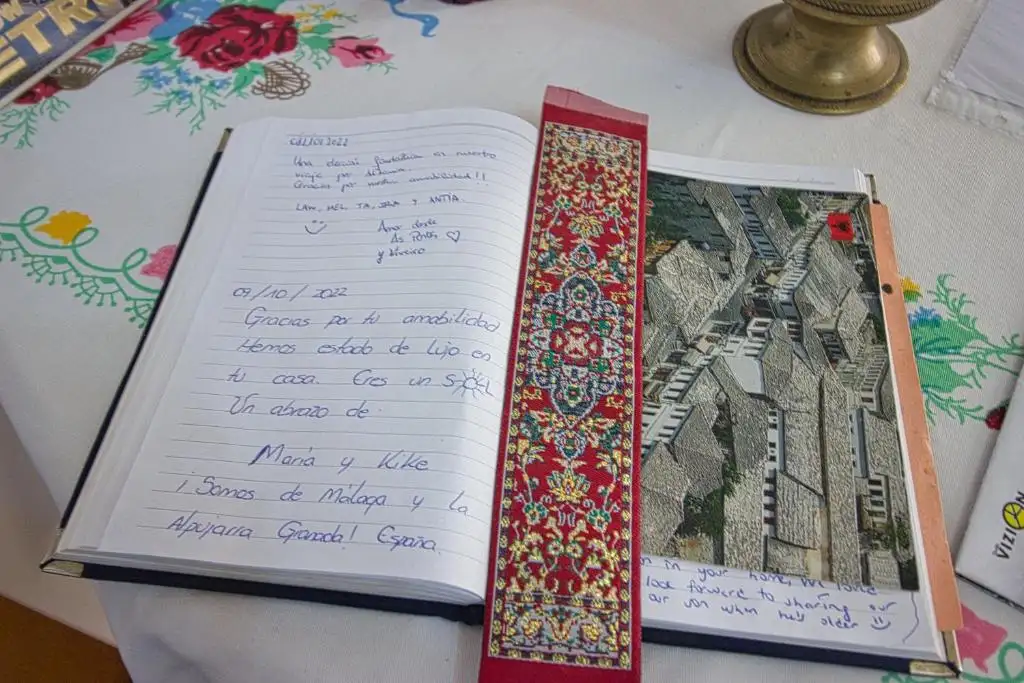 ETR
Una decisión fantástica en nuestro
viaje por
Gracias por vuestra amabilidad!!
Y ANTÍA.
Amor desde
As Pontes
y Viveiro
09/10/2022
Gracias por tu amabilidad
Hemos estado de lujo en
tu casa. Eres un SOL
Un abrazo de.
María y Kike
¡ Somos de Málaga y la
Alpujarra Granada! España.
in your home, we
look forward to sharing our
our son when he's older
VIZION